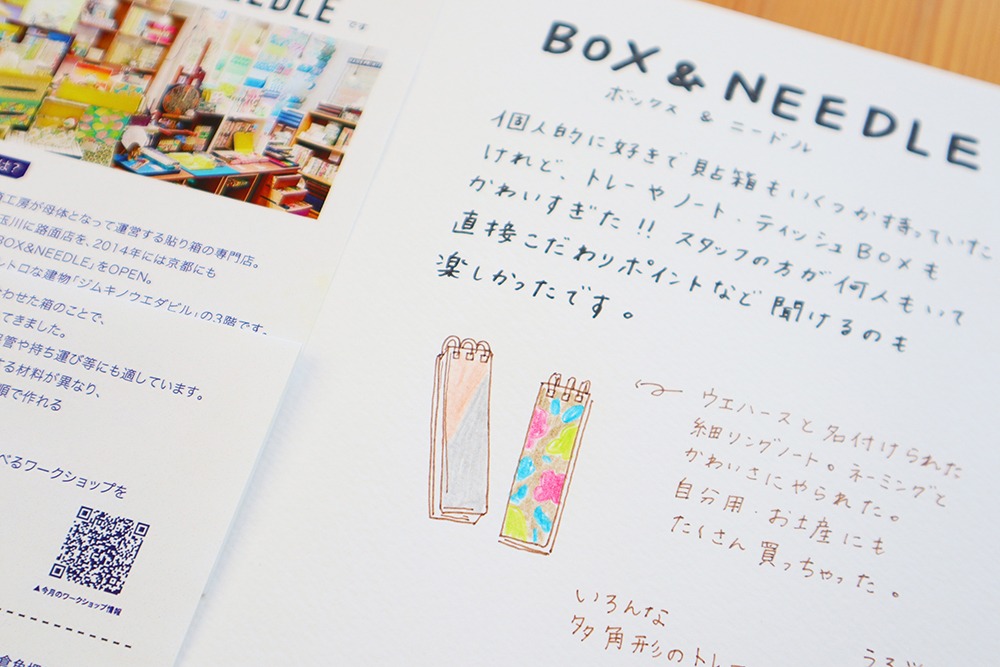 NEEDLE です
は?
工房が母体となって運営する貼り箱の専門店。
玉川に路面店を、2014年には京都にも
BOX&NEEDLE」をOPEN。
レトロな建物「ジムキノウエダビル」の3階です。
わせた箱のことで、
てきました。
管や持ち運び等にも適しています。
する材料が異なり、
順で作れる
べるワークショップを
▲今月のワークショップ情報
BOX & NEEDLE
ボックス & ニードル
個人的に好きで貼箱もいくつか持っていた
けれど、トレーやノート・ティッシュBOXも
かわいすぎた!! スタッフの方が何人もいて
直接こだわりポイントなど聞けるのも
楽しかったです。
ウエハースと名付けられた
細リングノート。ネーミングと
かわいさにやられた。
自分用・お土産にも
たくさん買っちゃった。
いろんな
多角形のトレー